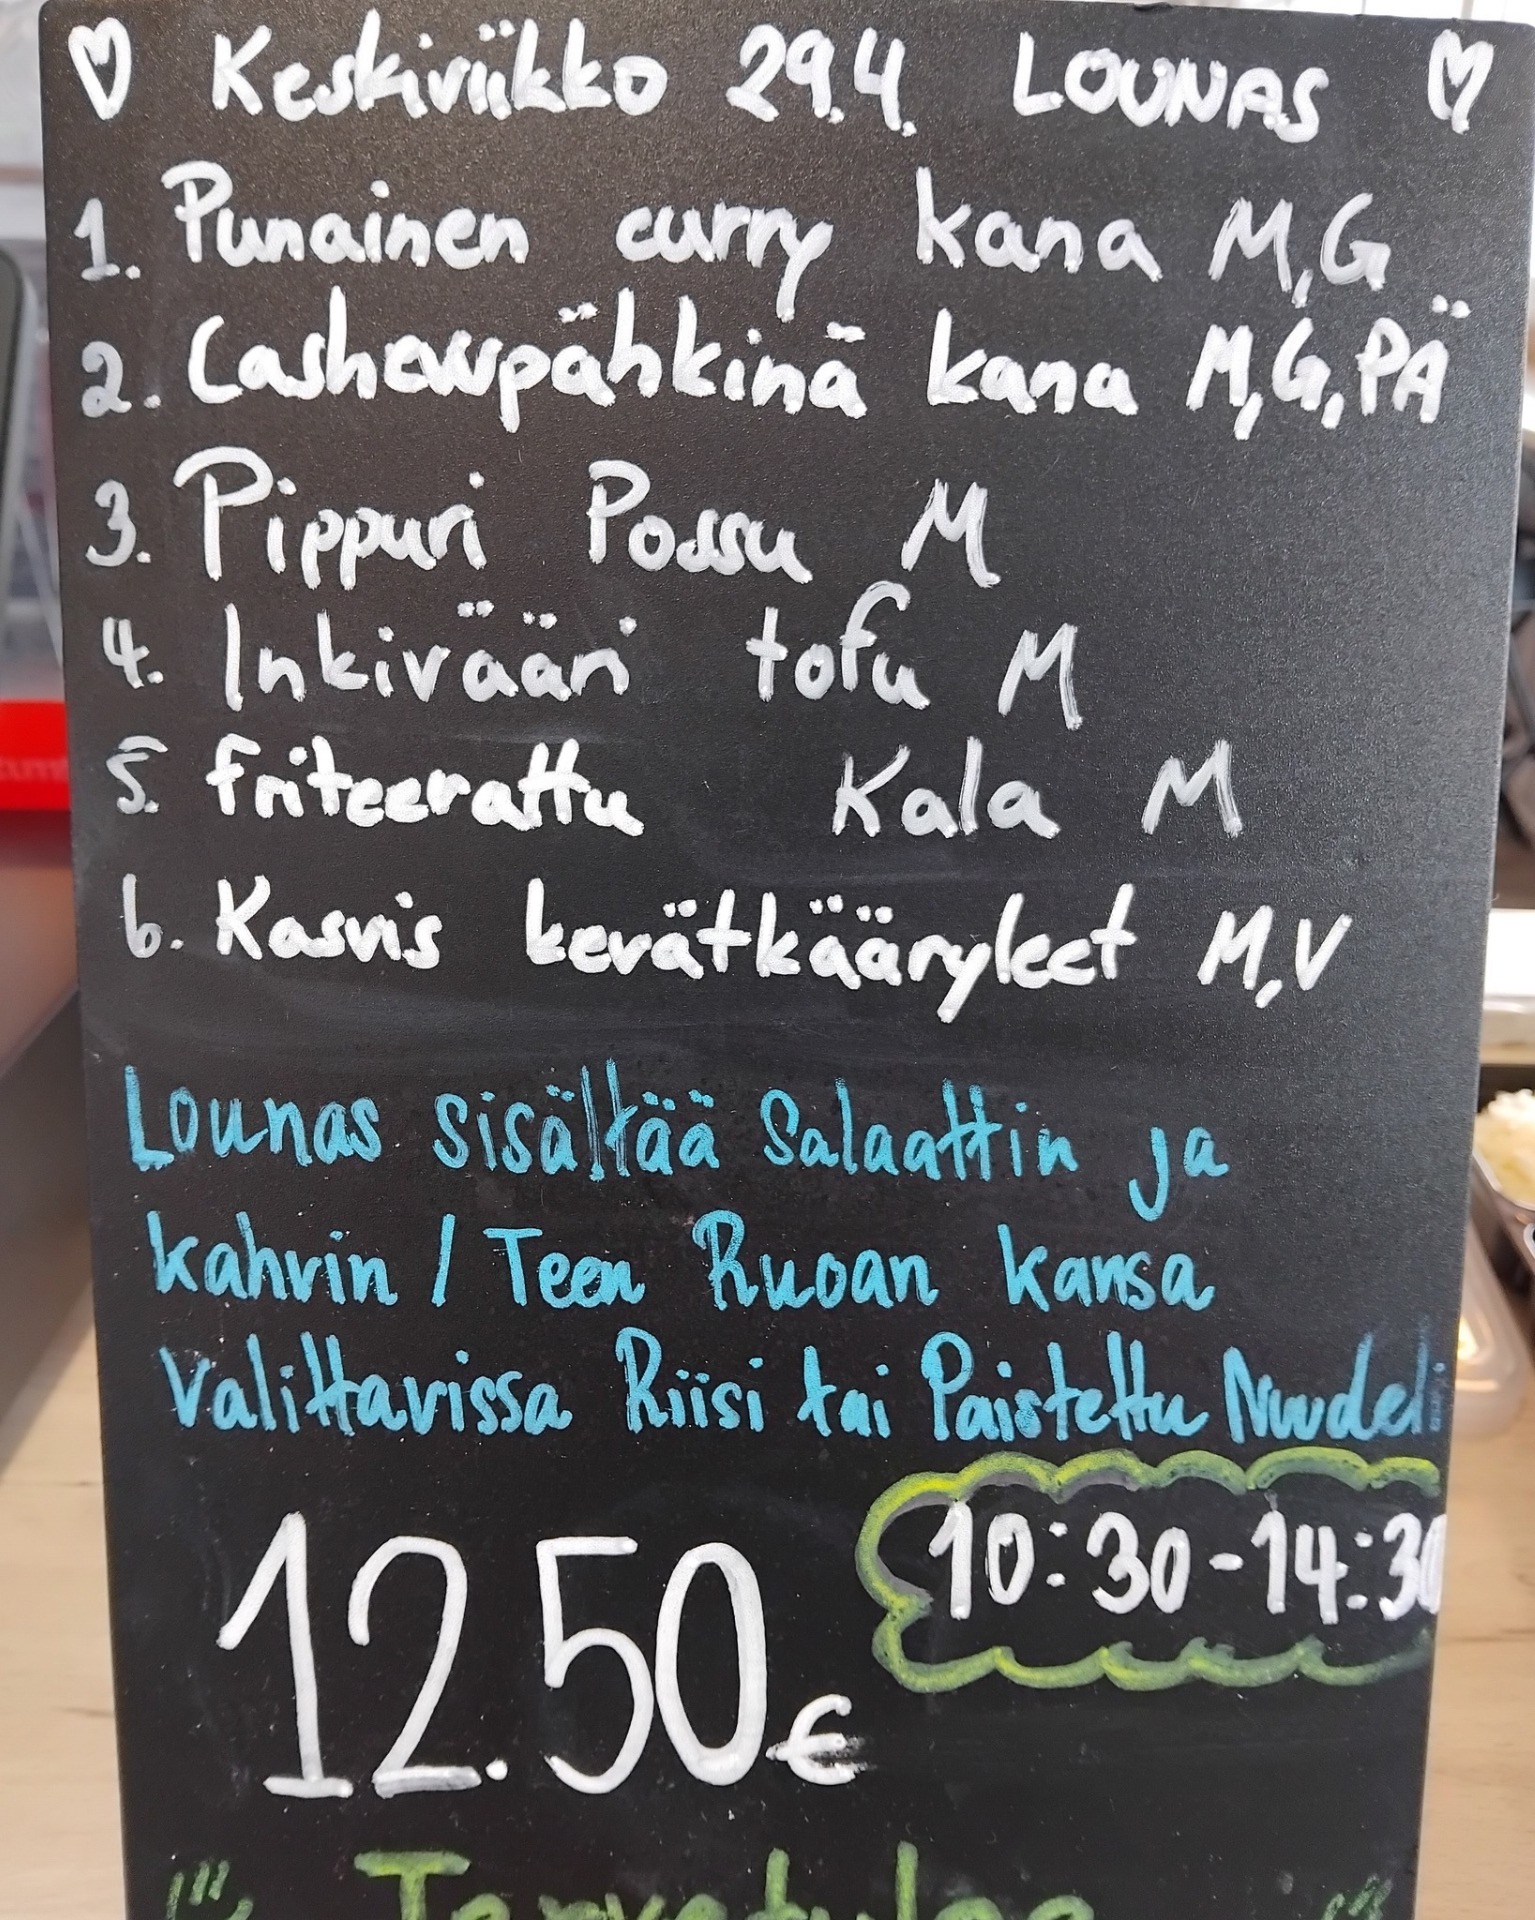 ♡ Keskiviikko 29.4. LOUNAS ♡
1. Punainen curry kana M,G
2. Cashewpähkinä kana M,G,PÄ
3. Pippuri Possu M
4. Inkivääri tofu M
5. friteerattu Kala M
6. Kasvis kevätkääryleet M,V
Lounas sisältää Salaattin ja
kahvin / Teen Ruoan kansa
valittavissa Riisi tai Paistettu Nuudeli
10:30-14:30
12.50€
Tervetuloa